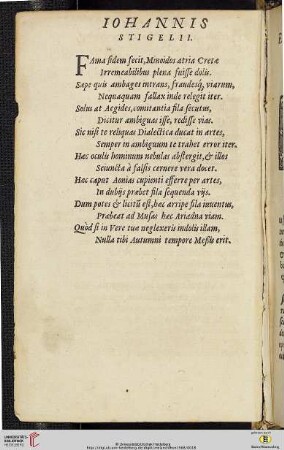 IOHANNIS
STIGELII.
FAma fidem fecit, Minoidos atria Cretæ
Irremeabilibus plena fuisse dolis.
Sæpe quis ambages intrans, fraudesq́; viarum,
Nequaquam fallax inde relegit iter.
Solus at Aegides, constantia fila secutus,
Dicitur ambiguas isse, redisse vias.
Sic nisi te reliquas Dialectica ducat in artes,
Semper in ambiguum te trahet error iter.
Hæc oculis hominum nebulas abstergit, & illos
Seiuncta à falsis cernere vera docet.
Hæc caput Aonias cupienti efferre per artes,
In dubijs præbet fila sequenda vijs.
Dum potes & licitũ est, hæc arripe fila iuuentus,
Præbeat ad Musas hæc Ariadna viam.
Quòd si in Vere tuæ neglexeris indolis illam,
Nulla tibi Autumni tempore Messis erit.
UNIVERSITÄTS-
BIBLIOTHEK
HEIDELBERG
© Universitätsbibliothek Heidelberg